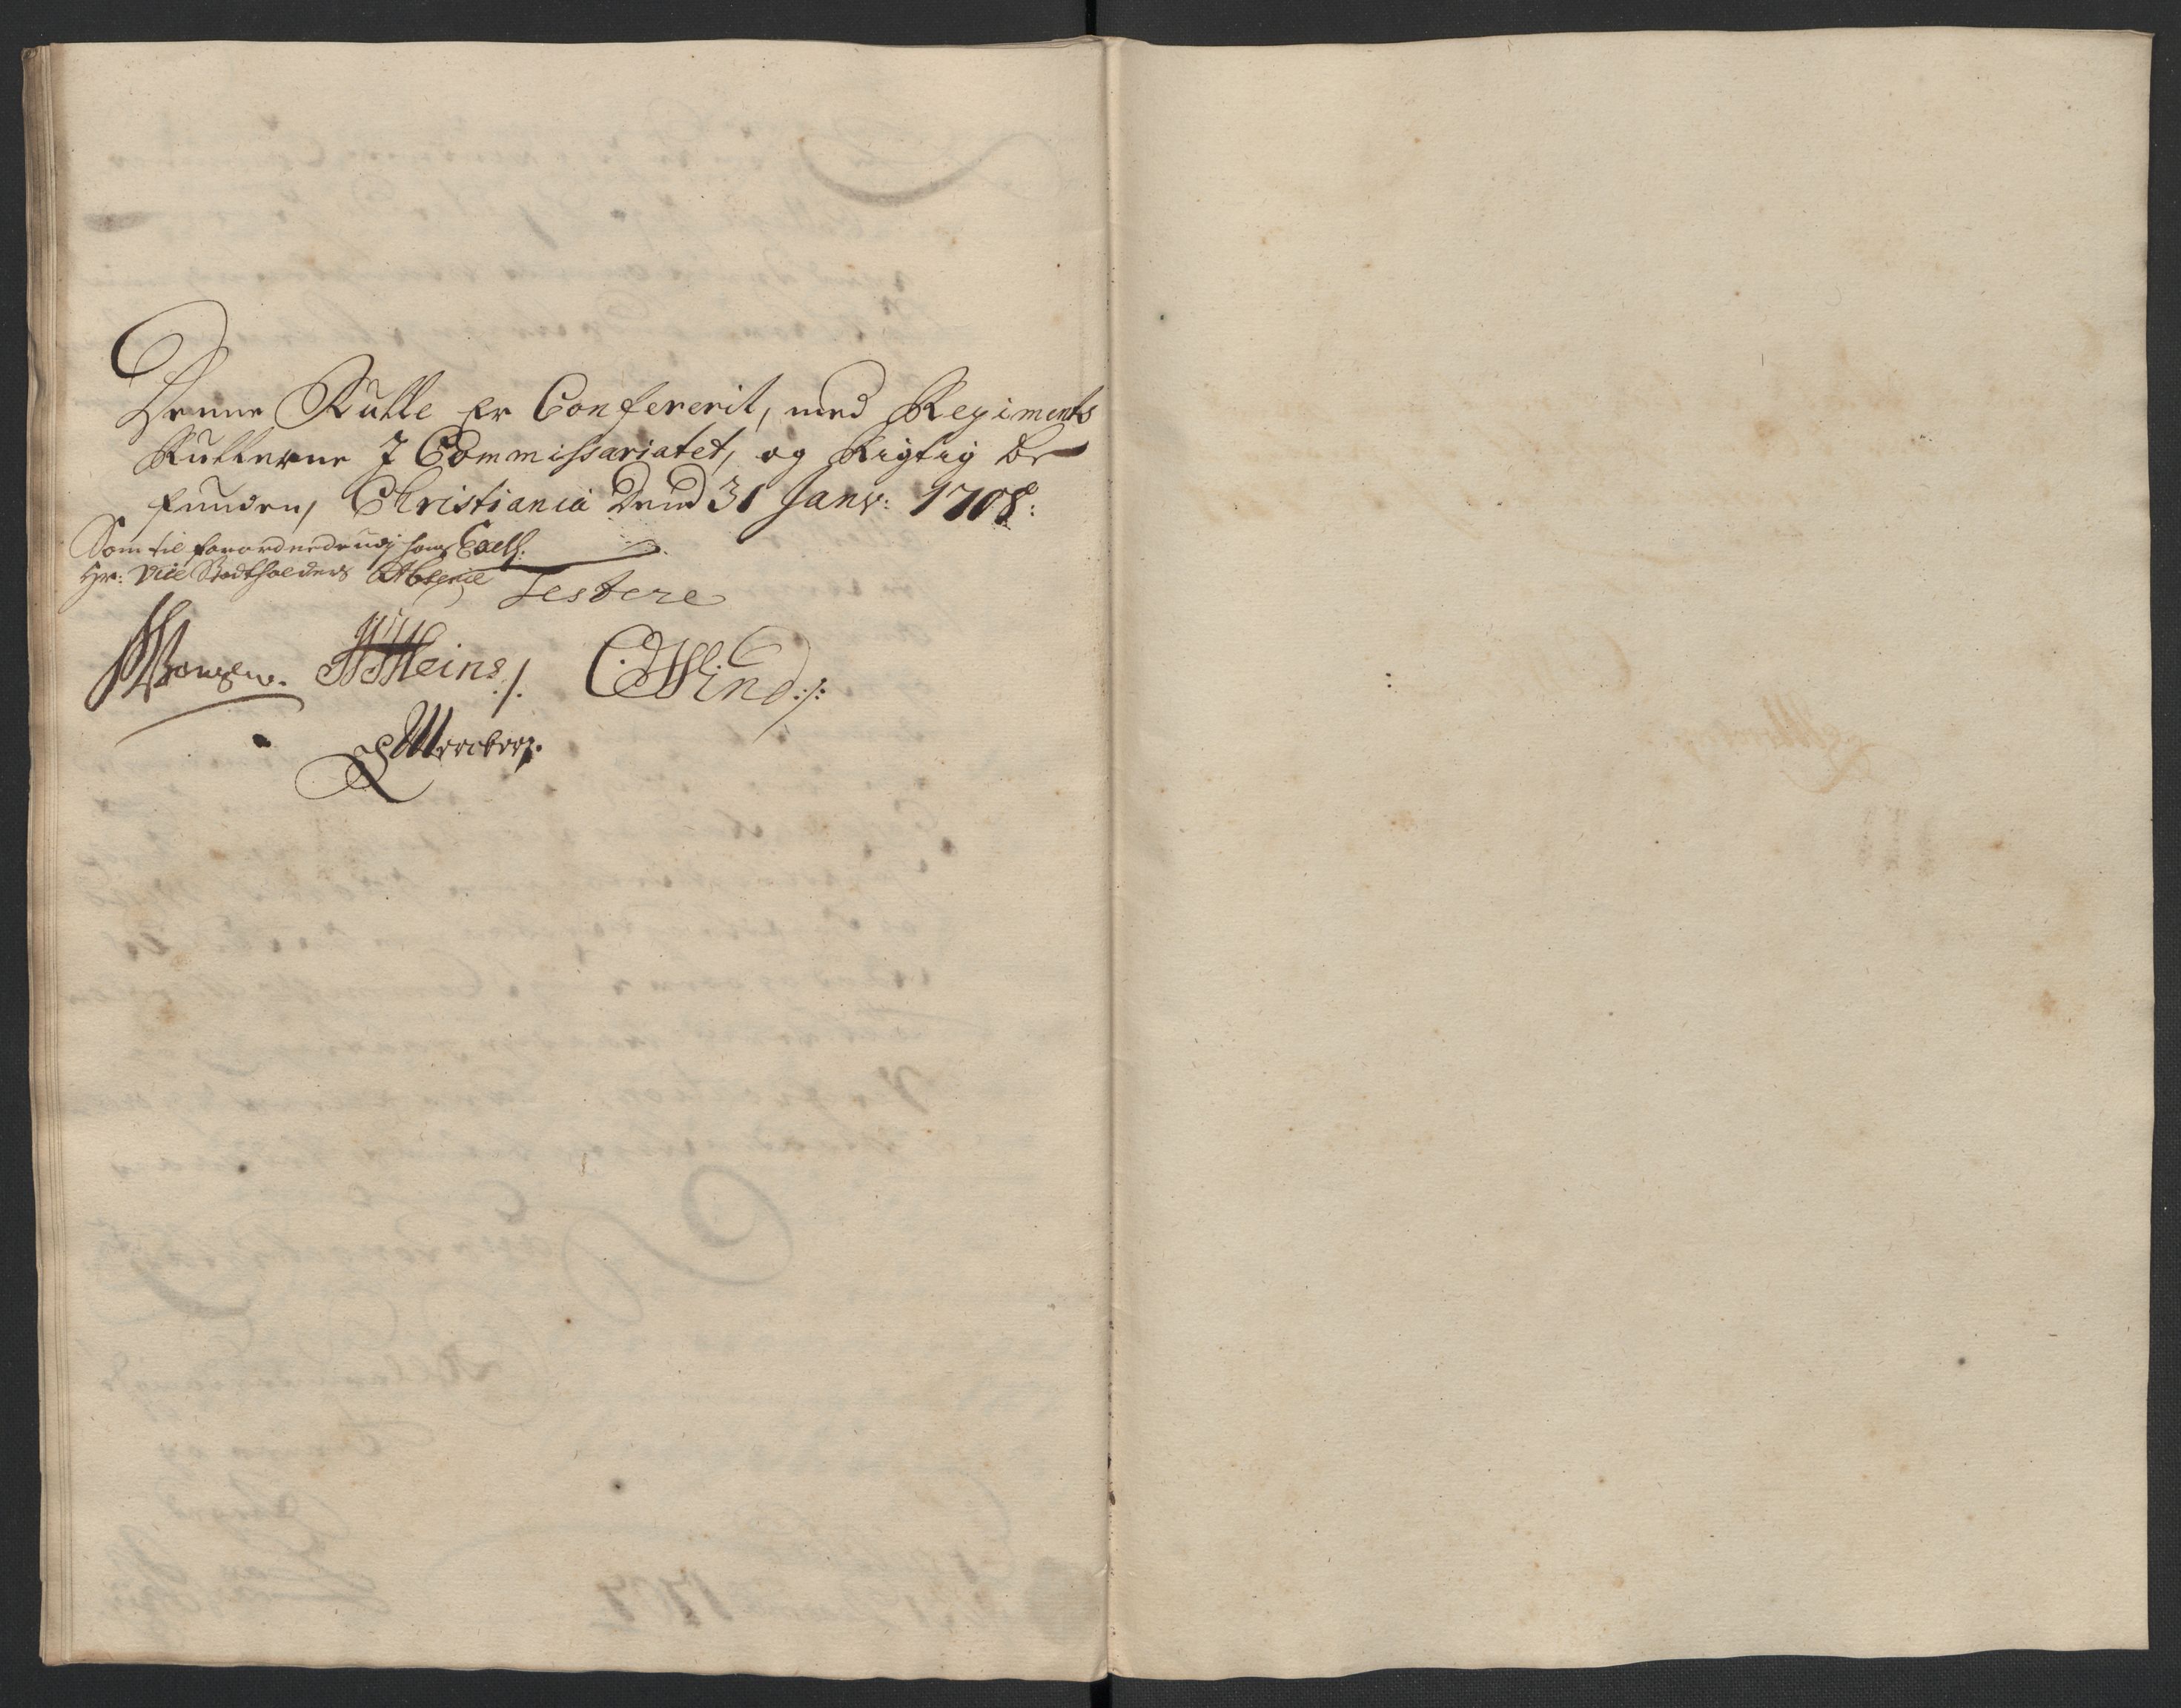 Denne Rulle er Confererit, med Regiments
Rullerne J Commissariatet, og Rigtig be
funden, Christiania Dend 31 Janv: 1708:
Som til forordnede udj hans Excell:
Hr: Vice Stadtholders Absence
Testere
HHeins:/. CWind:/: